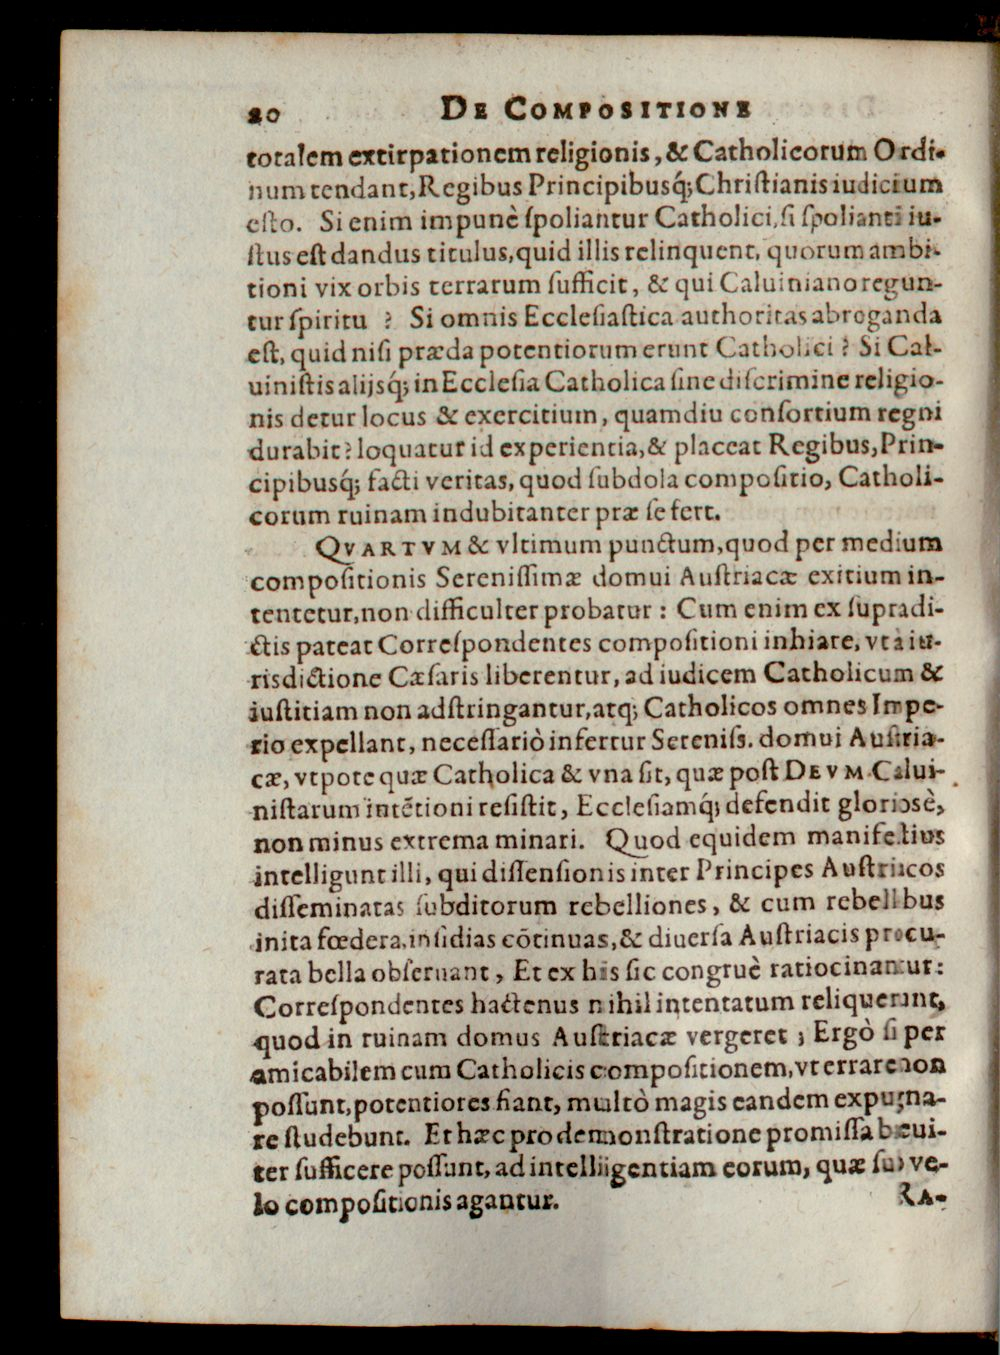 20 DE COMPOSITIONE
totalem extirpationem religionis, & Catholicorum Ordi-
num tendant, Regibus Principibusq́; Chriſtianis iudicium
eſto. Si enim impunè ſpoliantur Catholici, ſi ſpolianti iu-
ſtus eſt dandus titulus, quid illis relinquent, quorum ambi-
tioni vix orbis terrarum ſufficit, & qui Caluiniano regun-
tur ſpiritu ? Si omnis Eccleſiaſtica authoritas abroganda
eſt, quid niſi præda potentiorum erunt Catholici ? Si Cal-
uiniſtis alijsq́; in Eccleſia Catholica ſine diſcrimine religio-
nis detur locus & exercitium, quamdiu conſortium regni
durabit? loquatur id experientia, & placeat Regibus, Prin-
cipibusq́; facti veritas, quod ſubdola compoſitio, Catholi-
corum ruinam indubitanter præ ſe fert.
QVARTVM & vltimum punctum, quod per medium
compoſitionis Sereniſſimæ domui Auſtriacæ exitium in-
tentetur, non difficulter probatur : Cum enim ex ſupradi-
ctis pateat Correſpondentes compoſitioni inhiare, vt à iu-
risdictione Cæſaris liberentur, ad iudicem Catholicum &
iuſtitiam non adſtringantur, atq; Catholicos omnes Impe-
rio expellant, neceſſariò infertur Sereniſs. domui Auſtria-
cæ, vtpote quæ Catholica & vna ſit, quæ poſt DEVM Calui-
niſtarum intētioni reſiſtit, Eccleſiamq́; defendit glorioſè,
non minus extrema minari. Quod equidem manifeſtius
intelligunt illi, qui diſſenſionis inter Principes Auſtriacos
diſſeminatas ſubditorum rebelliones, & cum rebellibus
inita fœdera, inſidias cōtinuas, & diuerſa Auſtriacis procu-
rata bella obſeruant, Et ex his ſic congruè ratiocinantur:
Correſpondentes hactenus nihil intentatum reliquerunt,
quod in ruinam domus Auſtriacæ vergeret ; Ergò ſi per
amicabilem cum Catholicis compoſitionem, vt errare non
poſſunt, potentiores fiant, multò magis eandem expugna-
re ſtudebunt. Et hæc pro demonſtratione promiſſa breui-
ter ſufficere poſſunt, ad intelligentiam eorum, quæ ſub ve-
lo compoſitionis agantur.
RA-